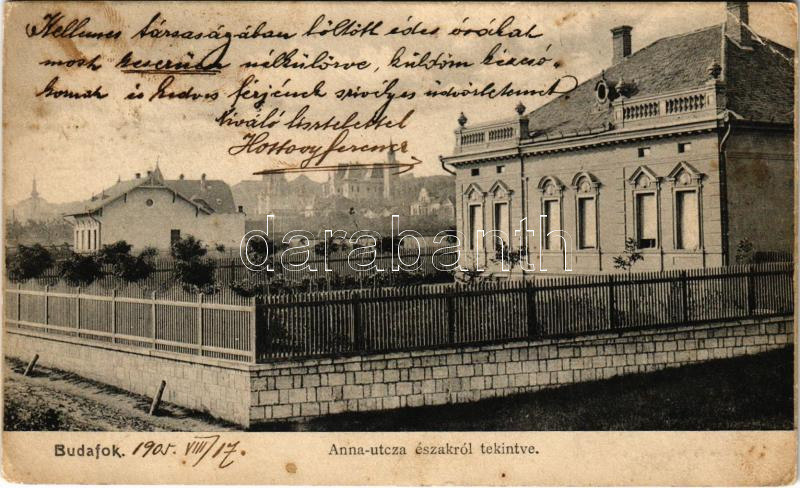 Kellemes társaságában töltött édes órákat
most keserűen nélkülözve, küldöm kézcsó-
komat és kedves férjének szivélyes üdvözletemet.
Kiváló tisztelettel
Hottovy Ferencz
darabanth.com
Budafok. 1905 VIII/17.
Anna-utcza északról tekintve.